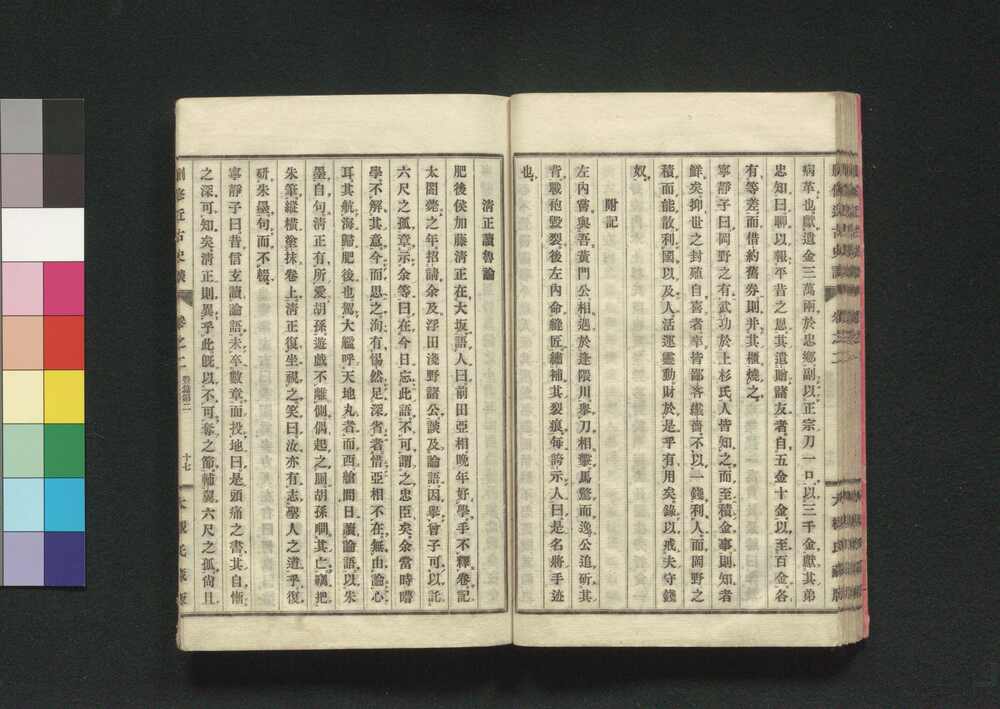 病革也獻遺金三萬兩於忠鄉副以正宗刀一口以三千金獻其弟
忠知曰聊以報平昔之恩其遺贈諸友者自五金十金以至百金各
有等差而借約舊券則并其櫃燒之
寧靜子曰岡野之有武功於上杉氏人皆知之而至積金事則知者
鮮矣抑世之封殖自喜者率皆鄙吝纖嗇不以一錢利人而岡野之
積而能散利國以及人活運靈動財於是乎有用矣錄以戒夫守錢
奴
附記
左內嘗與吾黃門公相遇於逢隈川擧刀相擊馬驚而逸公追斫其
背戰袍毀裂後左內命縫匠繡補其裂痕每誇示人曰是名將手迹
也
清正讀魯論
肥後侯加藤清正在大坂語人曰前田亞相晚年好學手不釋卷記
太閤薨之年招請余及浮田淺野諸公談及論語因擧曾子可以託
六尺之孤章示余等曰在今日忘此語不可謂之忠臣矣余當時嘈
學不解其意今而思之洵有惕然足深省者惜亞相不在無由論心
耳其航海歸肥後也駕大艦呼天地丸者而西艙間日讀論語以朱
墨自句清正有所愛胡孫遊戲不離側偶起之厠胡孫瞷其亡竊把
朱筆縱橫塗抹卷上清正復坐視之笑曰汝亦有志聖人之道乎復
研朱墨句而不輟
寧靜子曰昔信玄讀論語未卒數章而投地曰是頭痛之書其自慚
之深可知矣清正則異乎此旣以不可奪之節補翼六尺之孤尙且
刪修近古史談
卷之二
豐篇第二
十七
大槻氏藏版